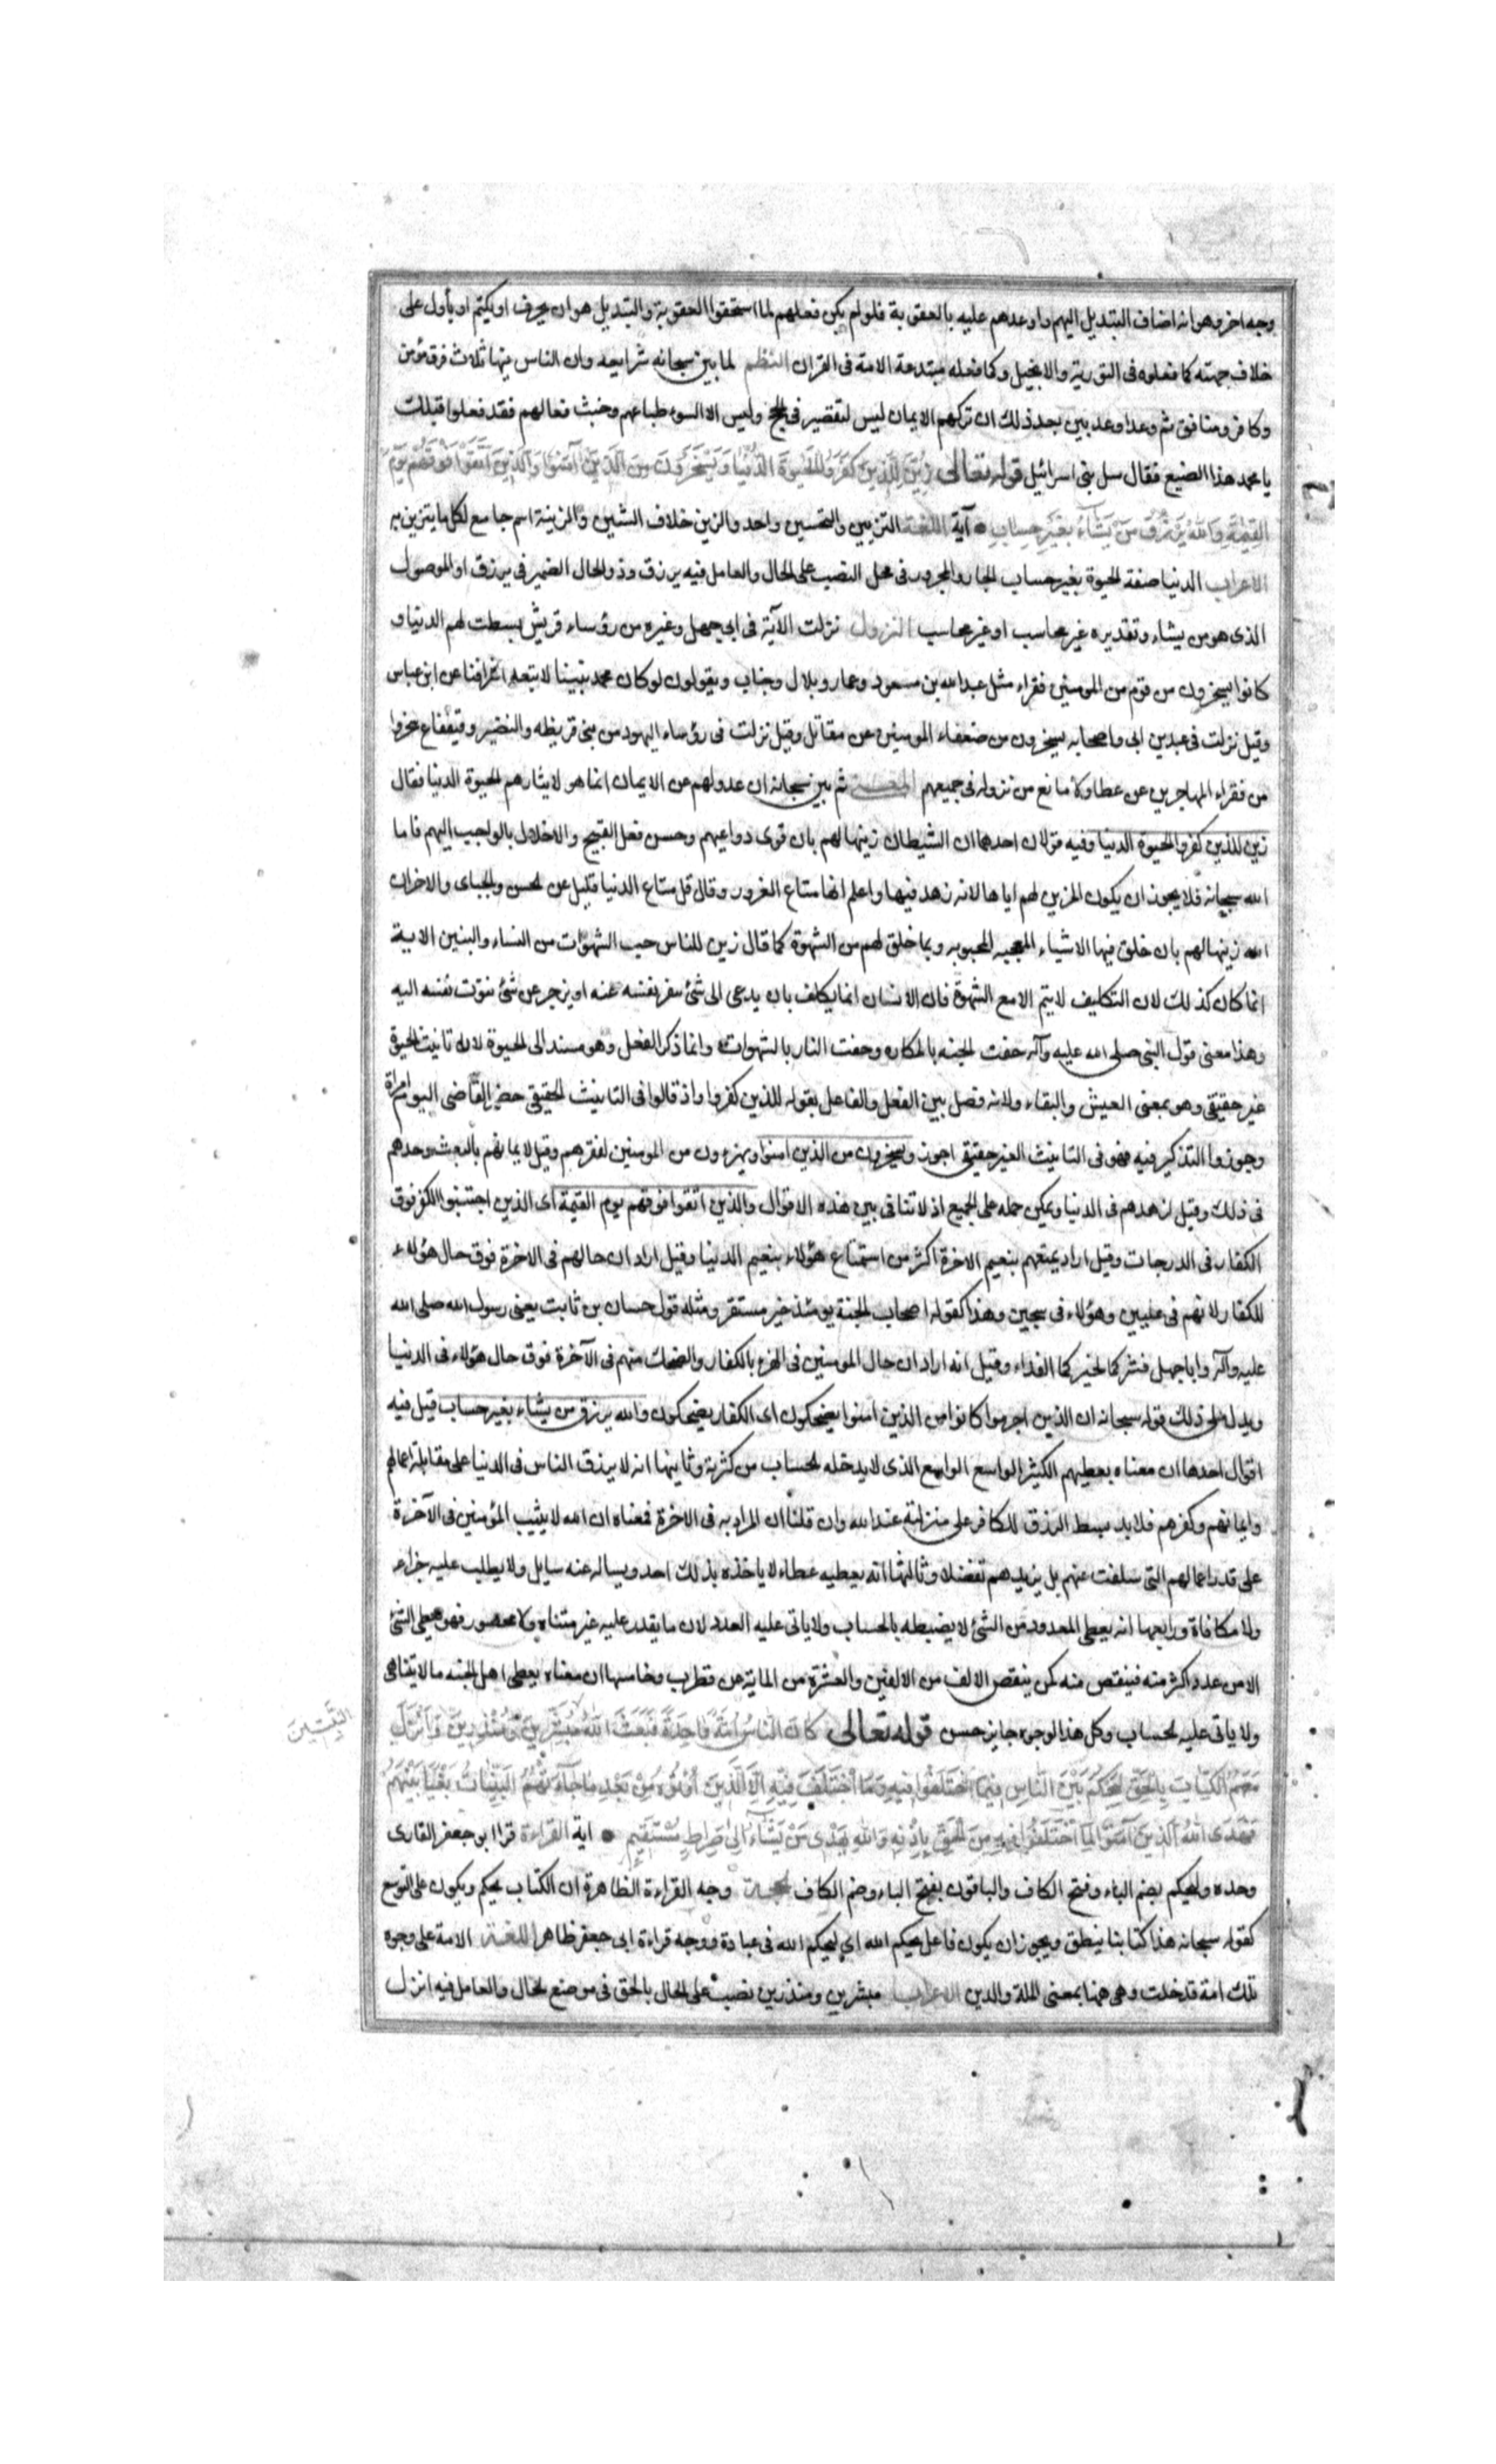 وجه اخر وهو انه اضاف التبديل اليهم واوعدهم عليه بالعقوبة فلو لم يكن فعلهم لما استحقوا العقوبة والتبديل هو ان يحرف او يكتم او يأول على
خلاف جهته كما فعلوه في التورية والانجيل وكما فعله مبتدعة الامة في القران النظم لما بين سبحانه شرايعه وان الناس فيها ثلاث فرق مؤمن
وكافر ومنافق ثم وعد واوعد بين بعد ذلك ان تركهم الايمان ليس لتقصير في الحجج وليس الا لسوء طباعهم وخبث فعالهم فقد فعلوا قبلك
يا محمد هذا الصنيع فقال سل بني اسرائيل قوله تعالى زُيِّنَ لِلَّذِينَ كَفَرُوا الْحَيٰوةَ الدُّنْيَا وَيَسْخَرُونَ مِنَ الَّذِينَ آمَنُوا وَالَّذِينَ اتَّقَوْا فَوْقَهُمْ يَوْمَ
الْقِيٰمَةِ وَاللّٰهُ يَرْزُقُ مَنْ يَشَاءُ بِغَيْرِ حِسَابٍ آية اللغة التزيين والتحسين واحد والزين خلاف الشين والزينة اسم جامع لكل ما يتزين به
الاعراب الدنيا صفة لحيوة بغير حساب الجار والمجرور في محل النصب على الحال والعامل فيه يرزق وذو الحال الضمير في يرزق او الموصول
الذي هو من يشاء وتقديره غير محاسب او غير محاسب النزول نزلت الآية في ابي جهل وغيره من رؤساء قريش بسطت لهم الدنيا و
كانوا يسخرون من قوم من المومنين فقراء مثل عبدالله بن مسعود وعمار وبلال وخباب ويقولون لو كان محمد نبينا لاتبعه اشرافنا عن ابن عباس
وقيل نزلت في عبد بن ابي واصحابه يسخرون من ضعفاء المومنين عن مقاتل وقيل نزلت في رؤساء اليهود من بني قريظه والنضير وقينقاع سخروا
من فقراء المهاجرين عن عطا ولا مانع من نزوله في جميعهم المعنى ثم بين سبحانه ان عدولهم عن الايمان انما هو لايثارهم الحيوة الدنيا فقال
زين للذين كفروا الحيوة الدنيا وفيه قولان احدهما ان الشيطان زينها لهم بان قوى دواعيهم وحسن فعل القبيح والاخلال بالواجب اليهم فاما
الله سبحانه فلا يجوز ان يكون المزين لهم اياها لانه زهد فيها واعلم انها متاع الغرور وقال قل متاع الدنيا قليل عن الحسن والجبائي والاخر ان
الله زينها لهم بان خلق فيها الاشياء المعجبه المحبوبه وبما خلق لهم من الشهوة كما قال زين للناس حب الشهوات من النساء والبنين الاية
انما كان كذلك لان التكليف لا يتم الا مع الشهوة فان الانسان انما يكلف بان يدعى الى شئ نفر نفسه عنه او يزجر عن شئ تتوق نفسه اليه
وهذا معنى قول النبي صلى الله عليه وآله حفت الجنه بالمكاره وحفت النار بالشهوات وانما ذكر الفعل وهو مسند الى الحيوة لان تانيث الحيوة
غير حقيقي وهو بمعنى العيش والبقاء ولانه فصل بين الفعل والفاعل بقوله للذين كفروا واذ قالوا في التانيث الحقيقي حضر القاضي اليوم امراة
وجوزوا التذكير فيه فهو في التانيث الغير حقيقي اجوز ويسخرون من الذين امنوا ويهزءون من المومنين لفقرهم وقيل لايمانهم بالبعث وجدهم
في ذلك وقيل لزهدهم في الدنيا ويمكن حمله على الجميع اذ لا تنافي بين هذه الاقوال والذين اتقوا فوقهم يوم القيمة اي الذين اجتنبوا الكفر فوق
الكفار في الدرجات وقيل اراد تمتعهم بنعيم الاخرة اكثر من استمتاع هؤلاء بنعيم الدنيا وقيل اراد ان حالهم في الاخرة فوق حال هؤلاء
للكفار لانهم في عليين وهؤلاء في سجين وهذا كقوله اصحاب الجنة يومئذ خير مستقر ومثله قول حسان بن ثابت يعني رسول الله صلى الله
عليه وآله وابا جهل فشركما لخيركما الفداء وقيل انه اراد ان حال المومنين في الهزء بالكفار والضحك منهم في الآخرة فوق حال هؤلاء في الدنيا
ويدل على ذلك قوله سبحانه ان الذين اجرموا كانوا من الذين امنوا يضحكون اى الكفار يضحكون والله يرزق من يشاء بغير حساب قيل فيه
اقوال احدها ان معناه يعطيهم الكثير الواسع الذى لا يدخله الحساب من كثرته وثانيها انه لا يرزق الناس في الدنيا على مقابلة اعمالهم
وايمانهم وكفرهم فلا يدل بسط الرزق للكافر على منزلته عند الله وان قلنا ان المراد به في الاخرة فمعناه ان الله لا يثيب المؤمنين في الآخرة
على قدر اعمالهم التى سلفت عنهم بل يزيدهم تفضلا وثالثها انه يعطيه عطاء لا ياخذه بذلك احد ويساله عنه سايل ولا يطلب عليه جزاء
ولا مكافاة ورابعها انه يعطي المعدود من الشئ لا يضبطه بالحساب ولا ياتي عليه العدد لان ما يقدر عليه غير متناه ولا محصور فهو يعطي الشئ
الا من عدد اكثر منه فينقص منه كمن ينقص الالف من الالفين والعشرة من الماية عن قطرب وخامسها ان معناه يعطي اهل الجنه ما لا يتناهى
ولا ياتي عليه الحساب وكل هذا الوجوه جايز حسن قوله تعالى كَانَ النَّاسُ اُمَّةً وَاحِدَةً فَبَعَثَ اللّٰهُ مُبَشِّرِينَ وَمُنْذِرِينَ وَاَنْزَلَ
النَّبِيِّينَ
مَعَهُمُ الْكِتَابَ بِالْحَقِّ لِيَحْكُمَ بَيْنَ النَّاسِ فِيمَا اخْتَلَفُوا فِيهِ وَمَا اخْتَلَفَ فِيهِ اِلَّا الَّذِينَ اُوتُوهُ مِنْ بَعْدِ مَا جَآءَتْهُمُ الْبَيِّنَاتُ بَغْيًا بَيْنَهُمْ
فَهَدَى اللّٰهُ الَّذِينَ آمَنُوا لِمَا اخْتَلَفُوا فِيهِ مِنَ الْحَقِّ بِاِذْنِهِ وَاللّٰهُ يَهْدِي مَنْ يَشَاءُ اِلَى صِرَاطٍ مُسْتَقِيمٍ اية القراءة قرا ابو جعفر القارى
وحده وليحكم بضم الياء وفتح الكاف والباقون بفتح الياء وضم الكاف الحجة وجه القراءة الظاهرة ان الكتاب يحكم ويكون على التوسع
كقوله سبحانه هذا كتابنا ينطق ويجوز ان يكون فاعل يحكم الله اي ليحكم الله في عباده ووجه قراءة ابي جعفر ظاهر اللغة الامة على وجوه
تلك امة قد خلت وهي ههنا بمعنى الملة والدين الاعراب مبشرين ومنذرين نصب على الحال بالحق في موضع الحال والعامل فيه انزل